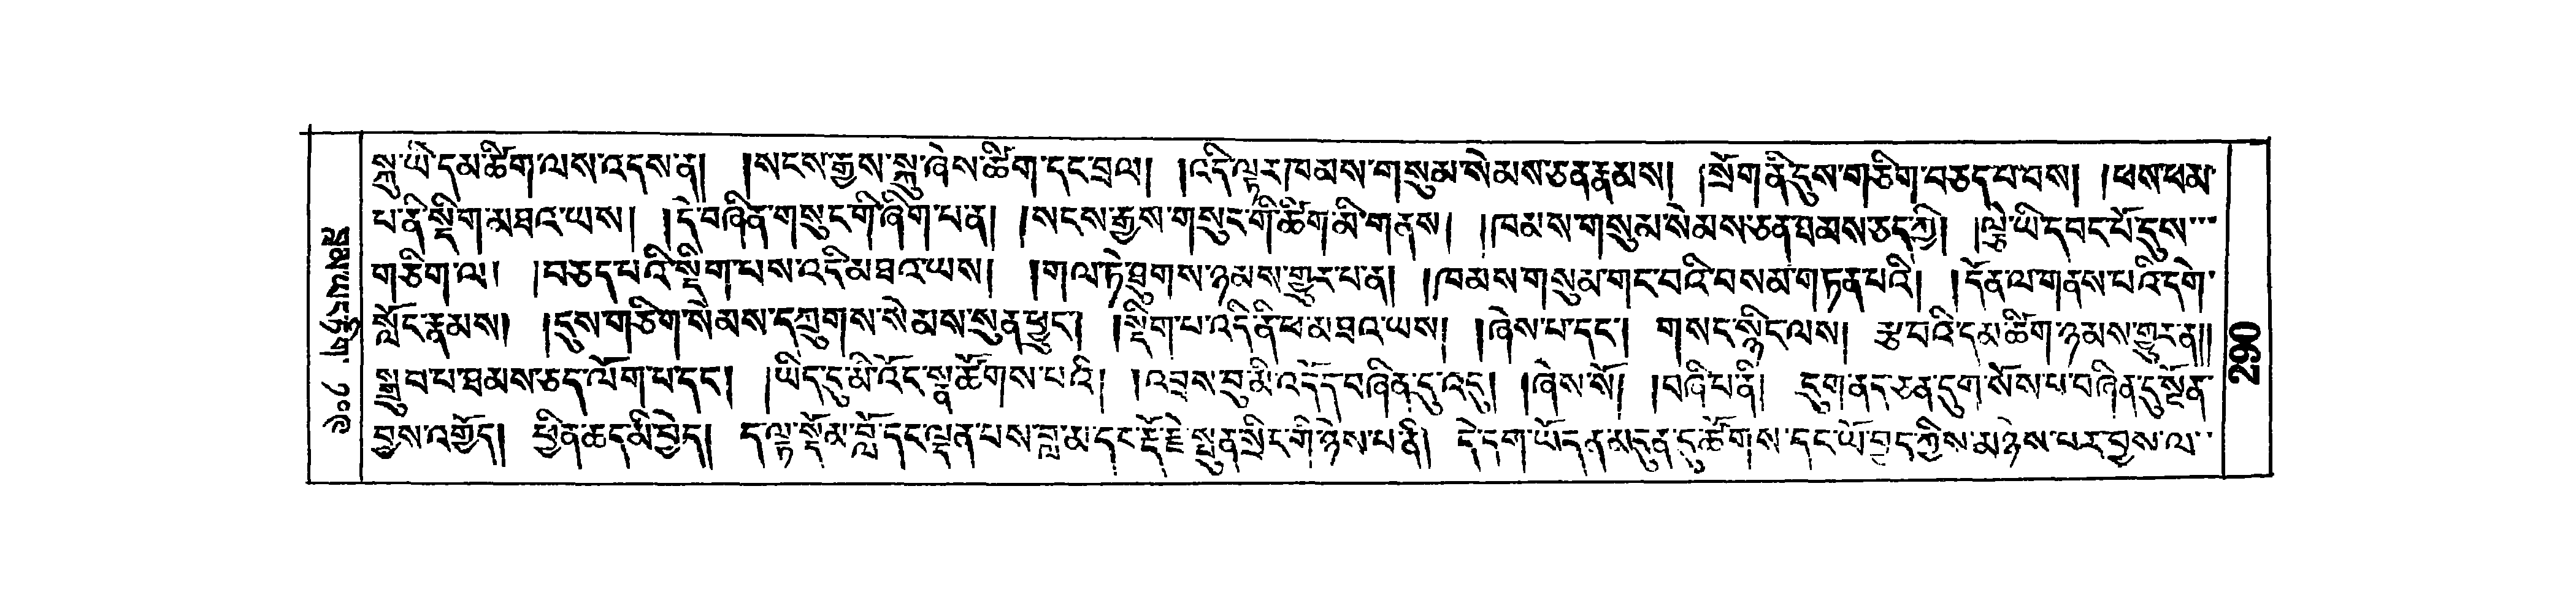 སྐུ་ཡི་དམ་ཚིག་ལས་འདས་ན། །སངས་རྒྱས་སྐུ་ཞེས་ཚིག་དང་བྲལ། །འདི་ལྟར་ཁམས་གསུམ་སེམས་ཅན་རྣམས། །སྲོག་ནི་དུས་གཅིག་བཅད་པ་བས། །ཕས་ཕམ་
པ་ནི་སྡིག་མཐའ་ཡས། །དེ་བཞིན་གསུང་གི་ཞིག་པ་ན། །སངས་རྒྱས་གསུང་གི་ཚིག་མི་གནས། །ཁམས་གསུམ་སེམས་ཅན་ཐམས་ཅད་ཀྱི། །ལྕེ་ཡི་དབང་པོ་དུས་
གཅིག་ལ། །བཅད་པའི་སྡིག་པས་འདི་མཐའ་ཡས། །གལ་ཏེ་ཐུགས་ཉམས་གྱུར་པ་ན། །ཁམས་གསུམ་གང་བའི་བསམ་གཏན་པའི། །དོན་ལ་གནས་པའི་དགེ་
སློང་རྣམས། །དུས་གཅིག་སེམས་དཀྲུགས་སེམས་སུན་ཕྱུང་། །སྡིག་པ་འདི་ནི་ཕ་མ་མཐའ་ཡས། །ཞེས་པ་དང་། གསང་སྙིང་ལས། རྩ་བའི་དམ་ཚིག་ཉམས་གྱུར་ན།།
སྒྲུབ་པ་ཐམས་ཅད་ལོག་པ་དང་། །ཡིད་དུ་མི་འོང་སྣ་ཚོགས་པའི། །འབྲས་བུ་མི་འདོད་བཞིན་དུ་འདུ། །ཞེས་སོ། །བཞི་པ་ནི། དུག་ནད་ཅན་དུག་སོས་པ་བཞིན་དུ་སྔོན་
བྱས་འགྱོད། ཕྱིན་ཆད་མི་བྱེད། ད་ལྟ་སྡོམ་བློ་དང་ལྡན་པས་བླ་མ་དང་རྡོ་རྗེ་སྤུན་སྲིང་གི་ཉེས་པ་ནི། དེ་དག་ཡོད་ན་མདུན་དུ་ཚོགས་དང་ཡོ་བྱད་ཀྱིས་མཉེས་པར་བྱས་ལ་